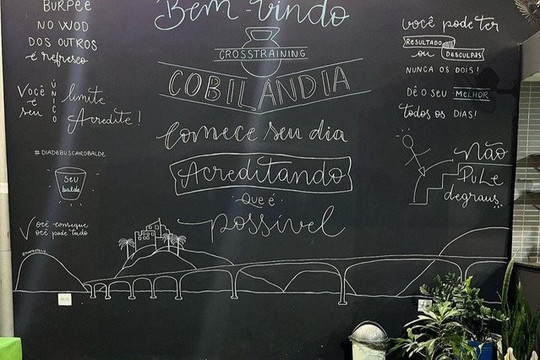 BURPEE
NO WOD
DOS OUTROS
É refresco
VOCÊ
É
seu
ÚNICO
limite
Acredite!
#DIADEBUSCAROBALDE
SEU
balde
Você consegue
Você pode tudo
Bem-vindo
CROSSTRAINING
COBILÂNDIA
Comece seu dia
Acreditando
Que é
possível
você pode ter
RESULTADO
ou DESCULPAS
NUNCA OS DOIS!
DÊ O SEU MELHOR
TODOS OS DIAS!
Não
PuLe
degraus